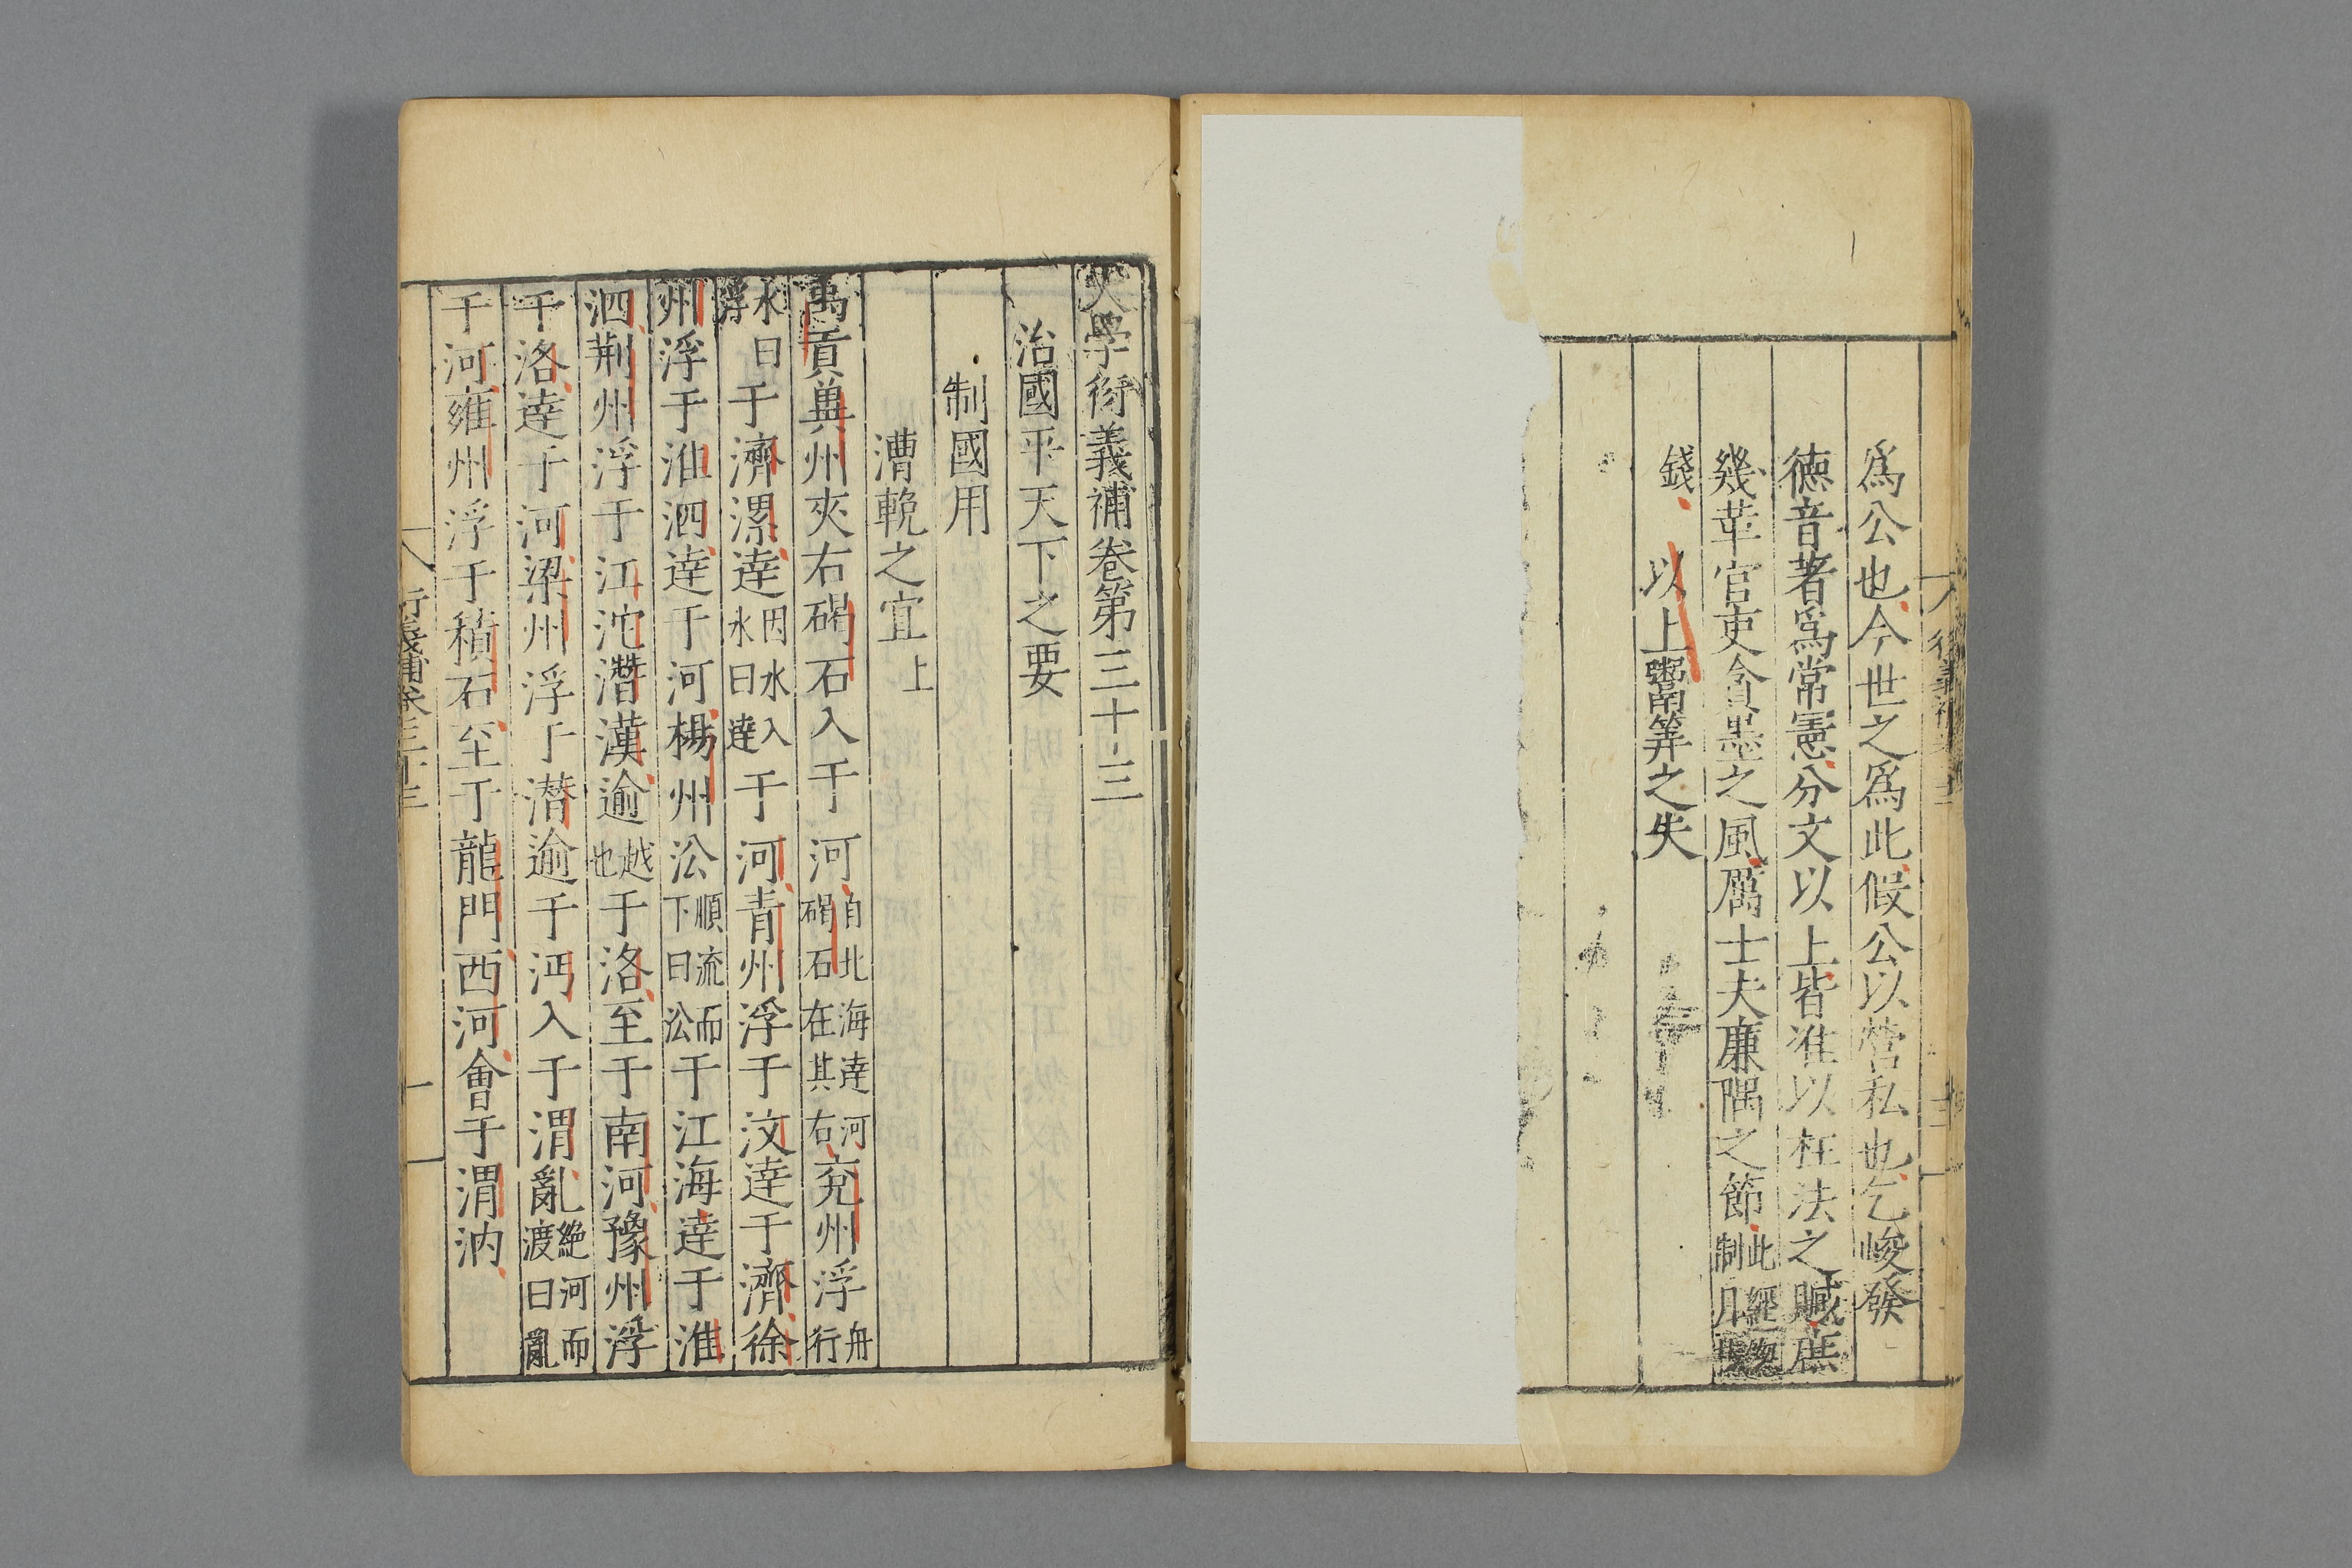 爲公也今世之爲此假公以營私也乞峻發
德音著爲常憲分文以上皆准以枉法之贓庶
幾革官吏貪墨之風厲士夫廉隅之節此經總制
錢 以上鬻筭之失
大學衍義補卷第三十三
治國平天下之要
制國用
漕輓之宜上
禹貢兾州夾右碣石入于河自北海達河碣石在其右兖州浮舟行
水曰浮于濟漯達因水入水曰達于河青州浮于汶達于濟徐
州浮于淮泗達于河楊州㳂順流而下曰㳂于江海達于淮
泗荆州浮于江沱潛漢逾越也于洛至于南河豫州浮
于洛達于河梁州浮于潜逾于沔入于渭亂絶河而渡曰亂
于河雍州浮于積石至于龍門西河會于渭汭
衍義補卷三十三 一